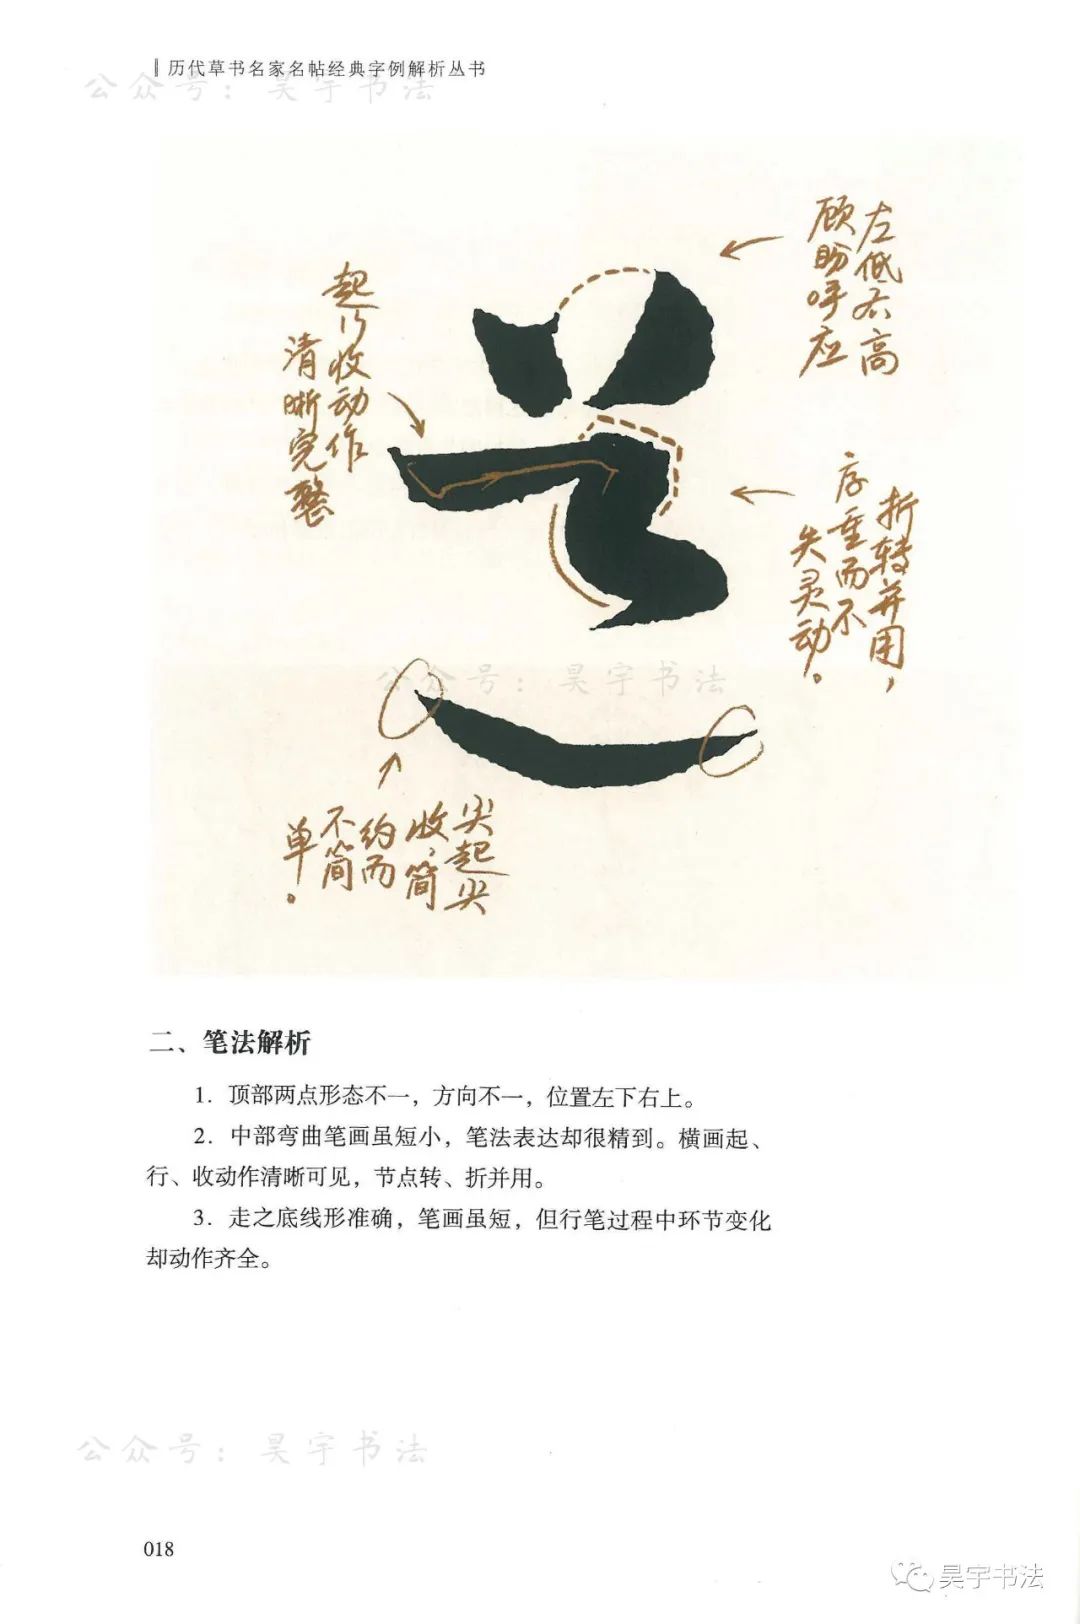 历代草书名家名帖经典字例解析丛书
公众号：昊宇书法
左低右高
顾盼呼应
起行收动作
清晰完整
折转并用，
厚重而不
失灵动。
公众号：昊宇书法
尖起尖
收，简
约而
不简
单。
二、笔法解析
1. 顶部两点形态不一，方向不一，位置左下右上。
2. 中部弯曲笔画虽短小，笔法表达却很精到。横画起、
行、收动作清晰可见，节点转、折并用。
3. 走之底线形准确，笔画虽短，但行笔过程中环节变化
却动作齐全。
公众号：昊宇书法
018
昊宇书法